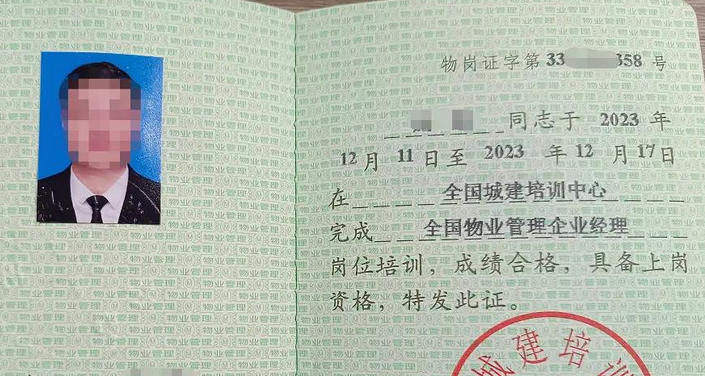 物岗证字第33 358 号
同志于 2023 年
12月 11日至 2023 年12 月17日
在 全国城建培训中心
完成 全国物业管理企业经理
岗位培训，成绩合格，具备上岗
资格，特发此证。
城建培训